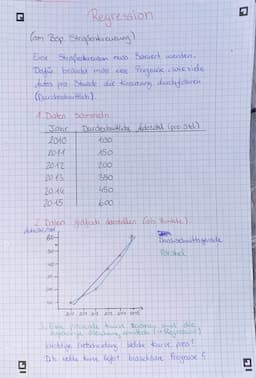 Regression
(am Bsp. Straßenkreuzung)
Eine Straßenkreuzung muss saniert werden.
Dafür braucht man eine Prognose, wie viele
Autos pro Stunde die Kreuzung durchfahren
(Durchschnittlich).
1. Daten sammeln
Jahr Durchschnittliche Autozahl (pro Std.)
2010 100
2011 150
2012 200
2013 380
2014 450
2015 600
2. Daten grafisch darstellen (als Punkte)
Durchschnittsgerade
Parabel
2010 2011 2012 2013 2014 2015
3. Eine passende Kurve
Wichtige Entscheidung: Welche Kurve passt?
D.h. welche Kurve liefert brauchbare Prognose?